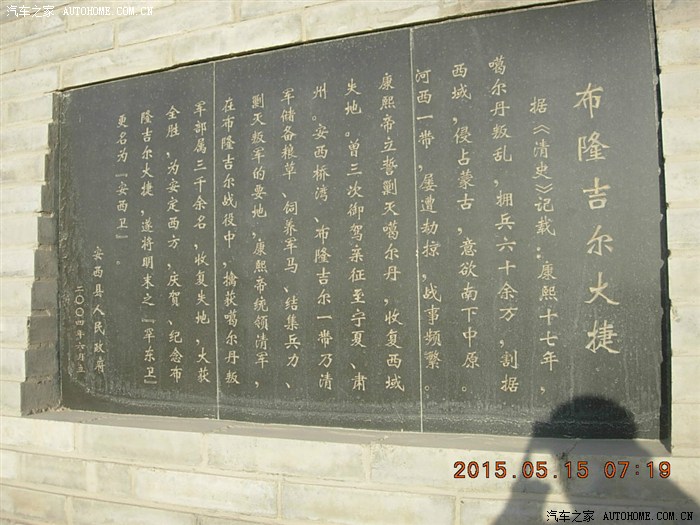 汽车之家 AUTOHOME.COM.CN
汽车之家 AUTOHOME.COM.CN
布隆吉尔大捷
据《清史》记载：康熙十七年，
噶尔丹叛乱，拥兵六十余万，割据
西域，侵占蒙古，意欲南下中原。
河西一带，屡遭劫掠，战事频繁。
康熙帝立誓剿灭噶尔丹，收复西域
失地。曾三次御驾亲征至宁夏、肃
州。安西桥湾、布隆吉尔一带乃清
军储备粮草、饲养军马、结集兵力、
剿灭叛军的要地，康熙帝统领清军，
在布隆吉尔战役中，擒获噶尔丹叛
军部属三千余名，收复失地，大获
全胜，为安定西方，庆贺、纪念布
隆吉尔大捷，遂将明末之『罕东卫』
更名为『安西卫』。
安西县人民政府
二〇〇四年六月立
2015.05.15 07:19
汽车之家 AUTOHOME.COM.CN
汽车之家 AUTOHOME.COM.CN